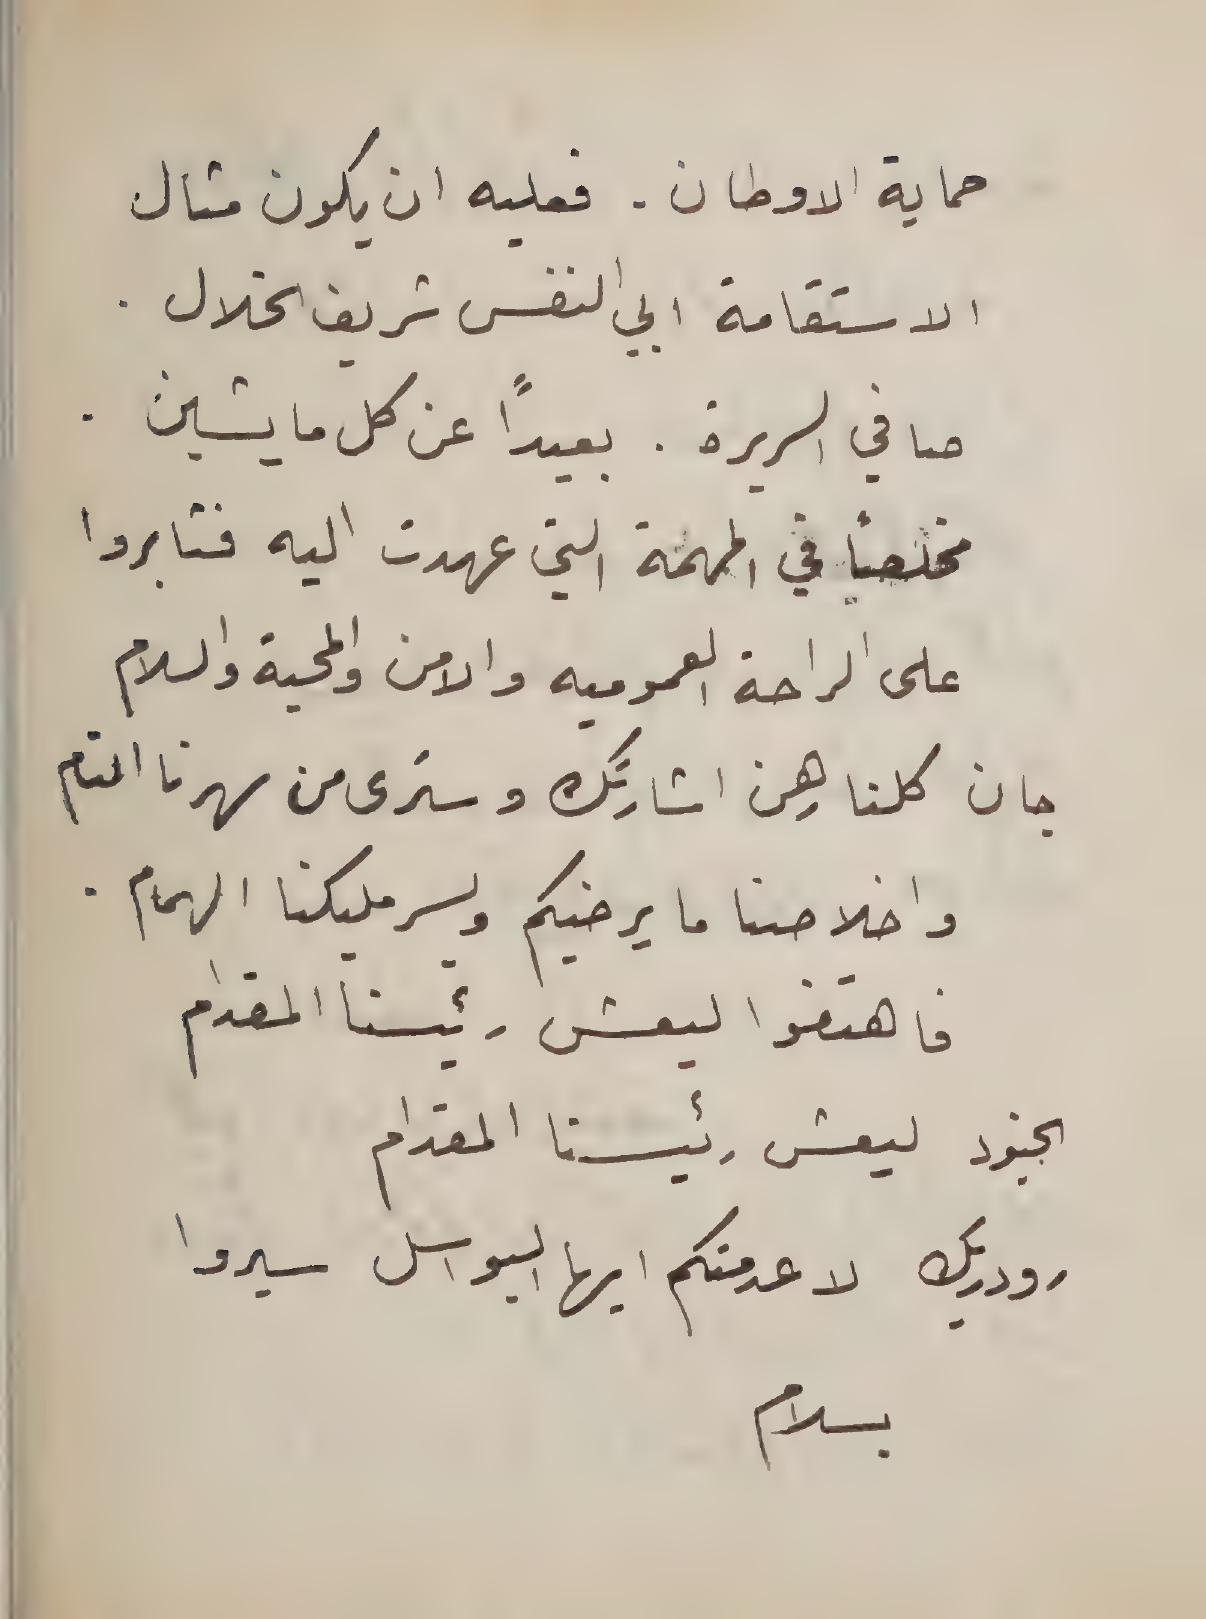 حماية الاوطان . فعليه ان يكون مثال
الاستقامة ابي النفس شريف الخلال .
صافي السريرة . بعيدًا عن كل ما يشين .
مخلصًا في المهمة التي عهدت اليه فثابروا
على الراحة العموميه والامن والمحبة والسلام
جان كلنا رهن اشارتك وسترى من سهرنا التام
واخلاصنا ما يرضيكم ويسر مليكنا الهمام .
فاهتفوا ليعش رئيسنا المقدام
الجنود ليعش رئيسنا المقدام
رودريك لا عدمتكم ايها البواسل سيروا
بسلام